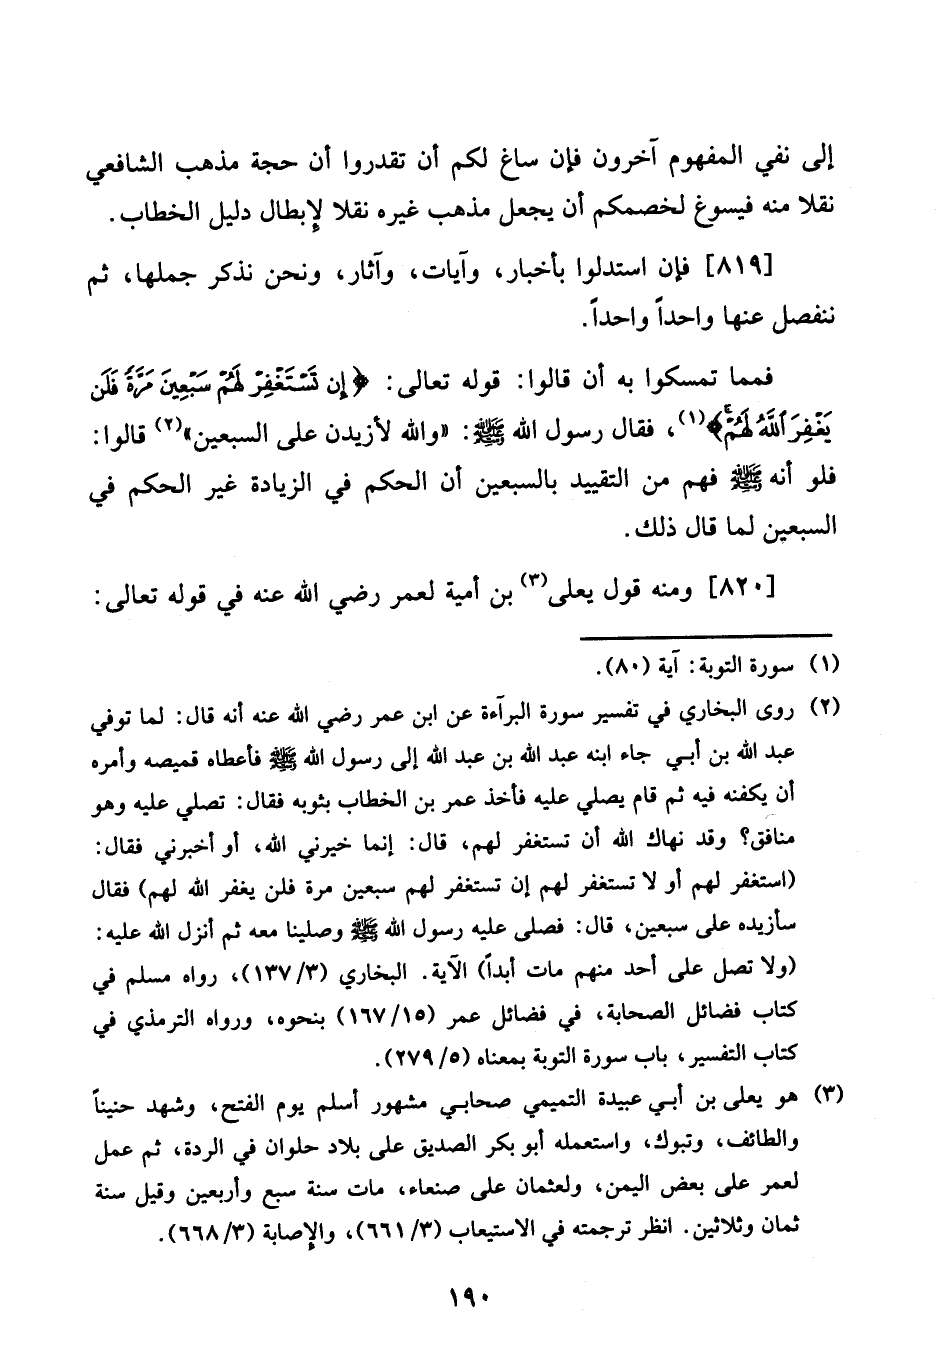 إلى نفي المفهوم آخرون فإن ساغ لكم أن تقدروا أن حجة مذهب الشافعي
نقلا منه فيسوغ لخصمكم أن يجعل مذهب غيره نقلا لإبطال دليل الخطاب.
[٨١٩] فإن استدلوا بأخبار، وآيات، وآثار، ونحن نذكر جملها، ثم
ننفصل عنها واحداً واحداً.
فمما تمسكوا به أن قالوا: قوله تعالى: ﴿إِن تَسْتَغْفِرْ لَهُمْ سَبْعِينَ مَرَّةً فَلَن
يَغْفِرَ ٱللَّهُ لَهُمْ﴾(١)، فقال رسول الله ﷺ: «والله لأزيدن على السبعين»(٢) قالوا:
فلو أنه ﷺ فهم من التقييد بالسبعين أن الحكم في الزيادة غير الحكم في
السبعين لما قال ذلك.
[٨٢٠] ومنه قول يعلى(٣) بن أمية لعمر رضي الله عنه في قوله تعالى:
(١) سورة التوبة: آية (٨٠).
(٢) روى البخاري في تفسير سورة البرآءة عن ابن عمر رضي الله عنه أنه قال: لما توفي
عبد الله بن أبي جاء ابنه عبد الله بن عبد الله إلى رسول الله ﷺ فأعطاه قميصه وأمره
أن يكفنه فيه ثم قام يصلي عليه فأخذ عمر بن الخطاب بثوبه فقال: تصلي عليه وهو
منافق؟ وقد نهاك الله أن تستغفر لهم، قال: إنما خيرني الله، أو أخبرني فقال:
(استغفر لهم أو لا تستغفر لهم إن تستغفر لهم سبعين مرة فلن يغفر الله لهم) فقال
سأزيده على سبعين، قال: فصلى عليه رسول الله ﷺ وصلينا معه ثم أنزل الله عليه:
(ولا تصل على أحد منهم مات أبداً) الآية. البخاري (١٣٧/٣)، رواه مسلم في
كتاب فضائل الصحابة، في فضائل عمر (١٦٧/١٥) بنحوه، ورواه الترمذي في
كتاب التفسير، باب سورة التوبة بمعناه (٢٧٩/٥).
(٣) هو يعلى بن أبي عبيدة التميمي صحابي مشهور أسلم يوم الفتح، وشهد حنيناً
والطائف، وتبوك، واستعمله أبو بكر الصديق على بلاد حلوان في الردة، ثم عمل
لعمر على بعض اليمن، ولعثمان على صنعاء، مات سنة سبع وأربعين وقيل سنة
ثمان وثلاثين. انظر ترجمته في الاستيعاب (٦٦١/٣)، والإصابة (٦٦٨/٣).
١٩٠